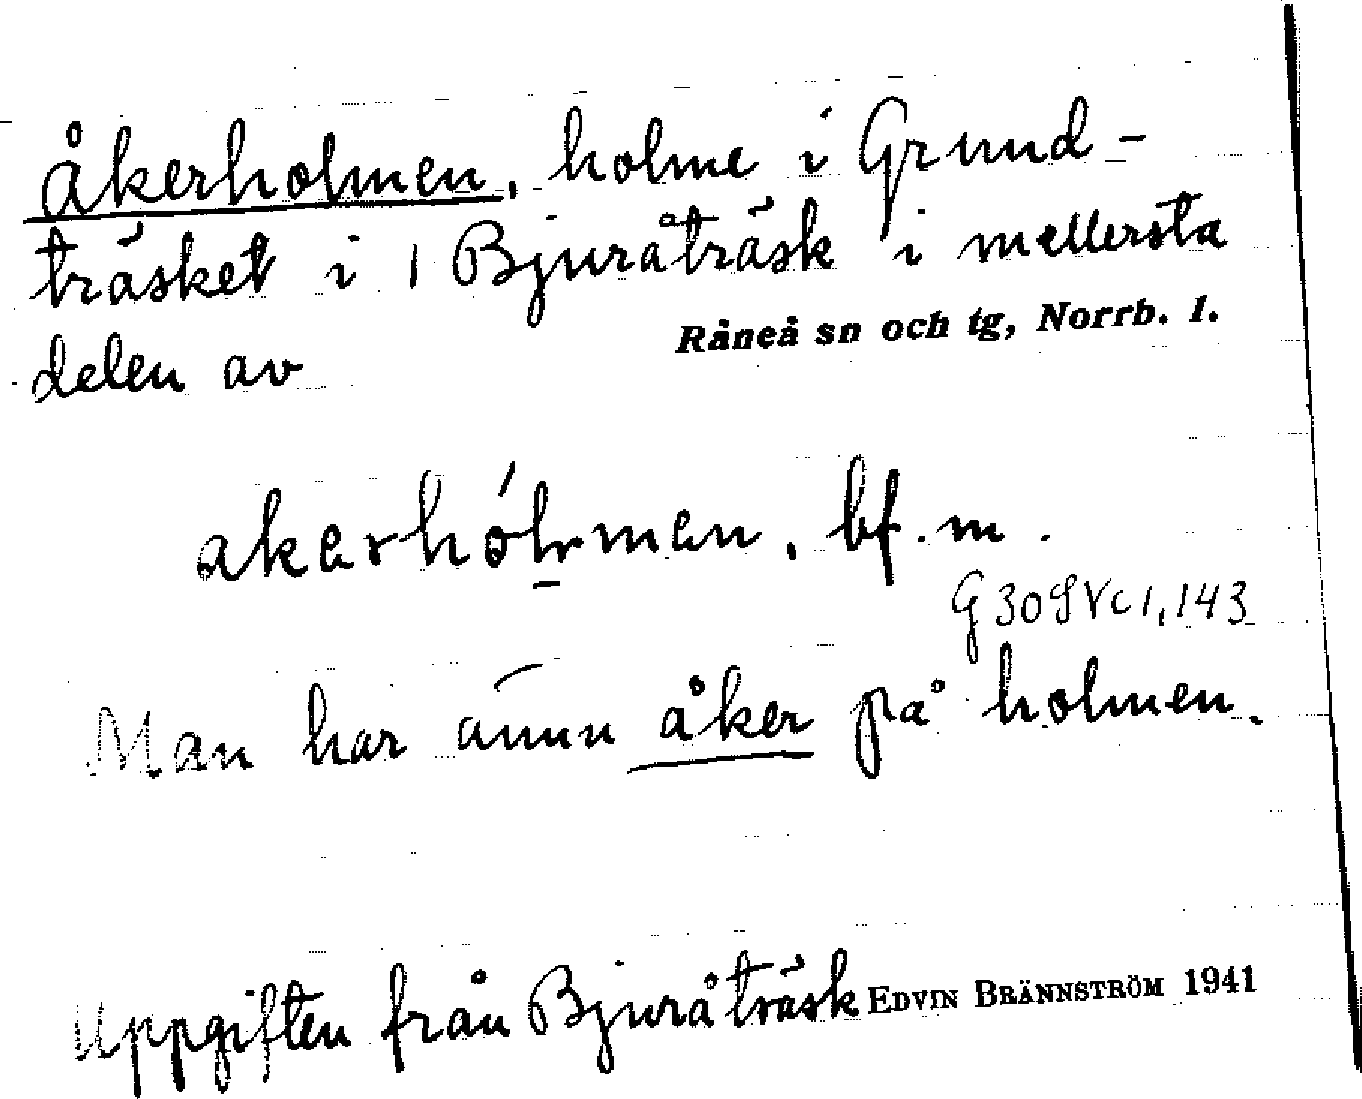 Åkerholmen, holme i Grund-
träsket i 1 Bjuråträsk i mellersta
delen av Råneå sn och tg, Norrb. l.
akerhólmen, bf. m.
G 309 Vc 1, 143
Man har ännu åker på holmen.
Uppgiften från Bjuråträsk EDVIN BRÄNNSTRÖM 1941